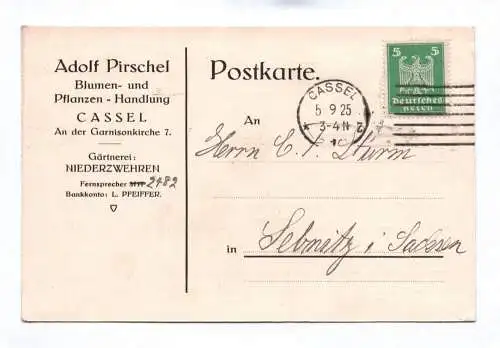 Adolf Pirschel
Blumen- und
Pflanzen - Handlung
CASSEL
An der Garnisonkirche 7.
Gärtnerei:
NIEDERZWEHREN
Fernsprecher 2482
Bankkonto: L. PFEIFFER.
Postkarte.
5 5
Deutsches
Reich
CASSEL
5.9.25
3-4 N
An
Herrn C. Sturm
in Sebnitz i. Sachsen